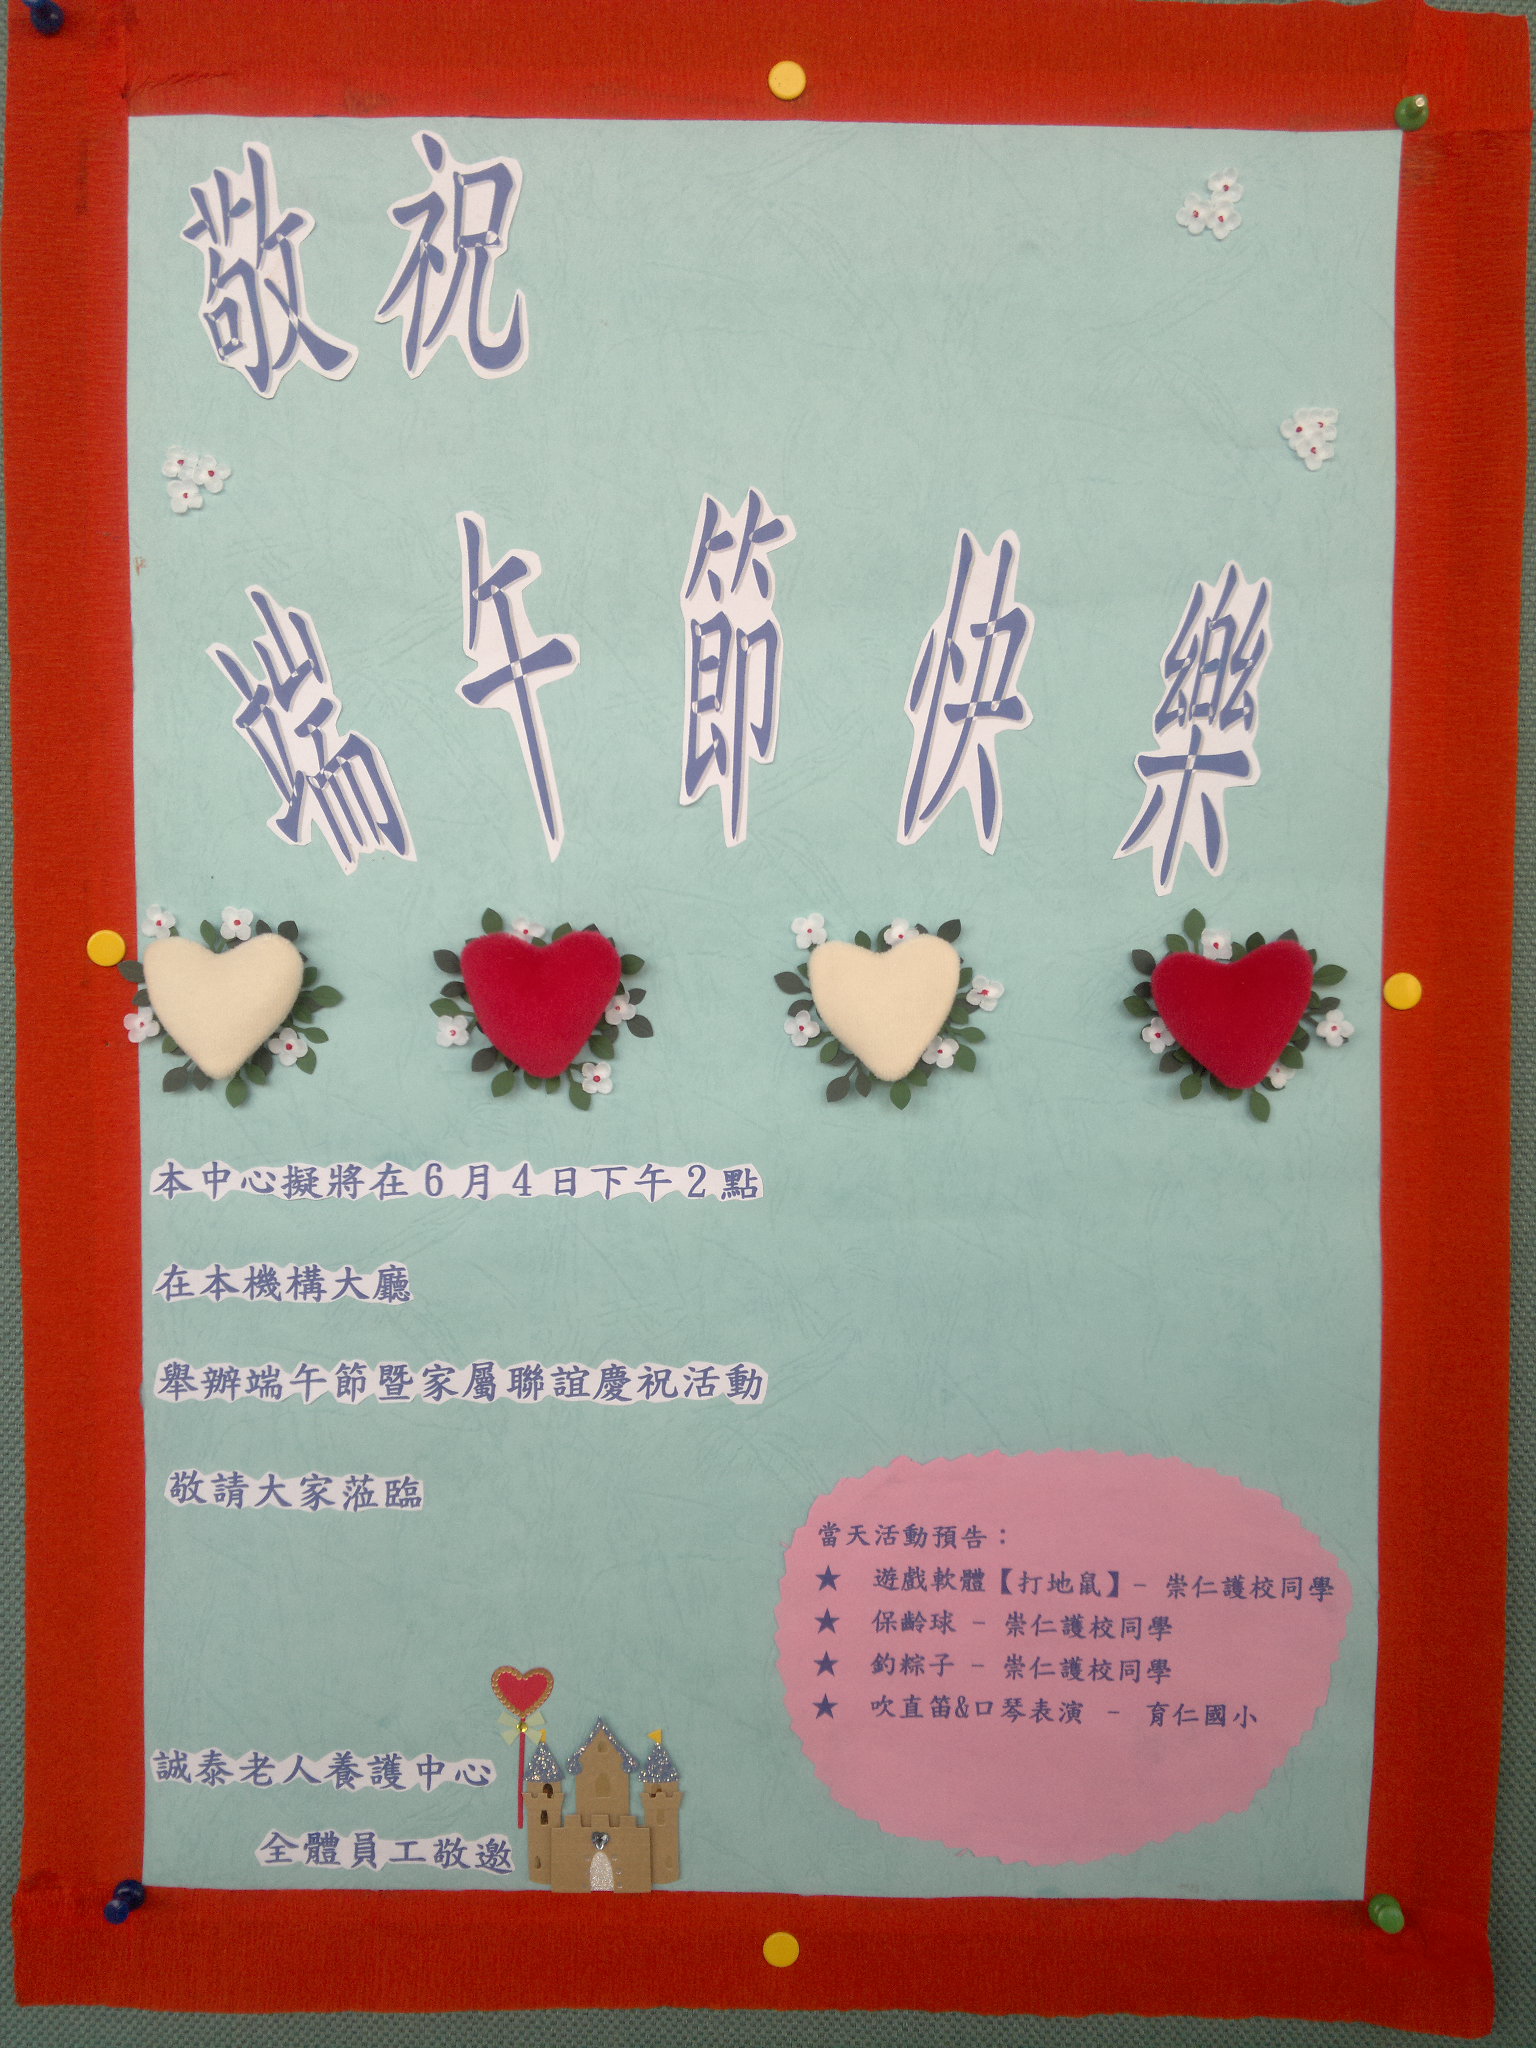 敬祝
端午節快樂
本中心擬將在6月4日下午2點
在本機構大廳
舉辦端午節暨家屬聯誼慶祝活動
敬請大家蒞臨
當天活動預告：
★ 遊戲軟體【打地鼠】- 崇仁護校同學
★ 保齡球 - 崇仁護校同學
★ 釣粽子 - 崇仁護校同學
★ 吹直笛&口琴表演 - 育仁國小
誠泰老人養護中心
全體員工敬邀